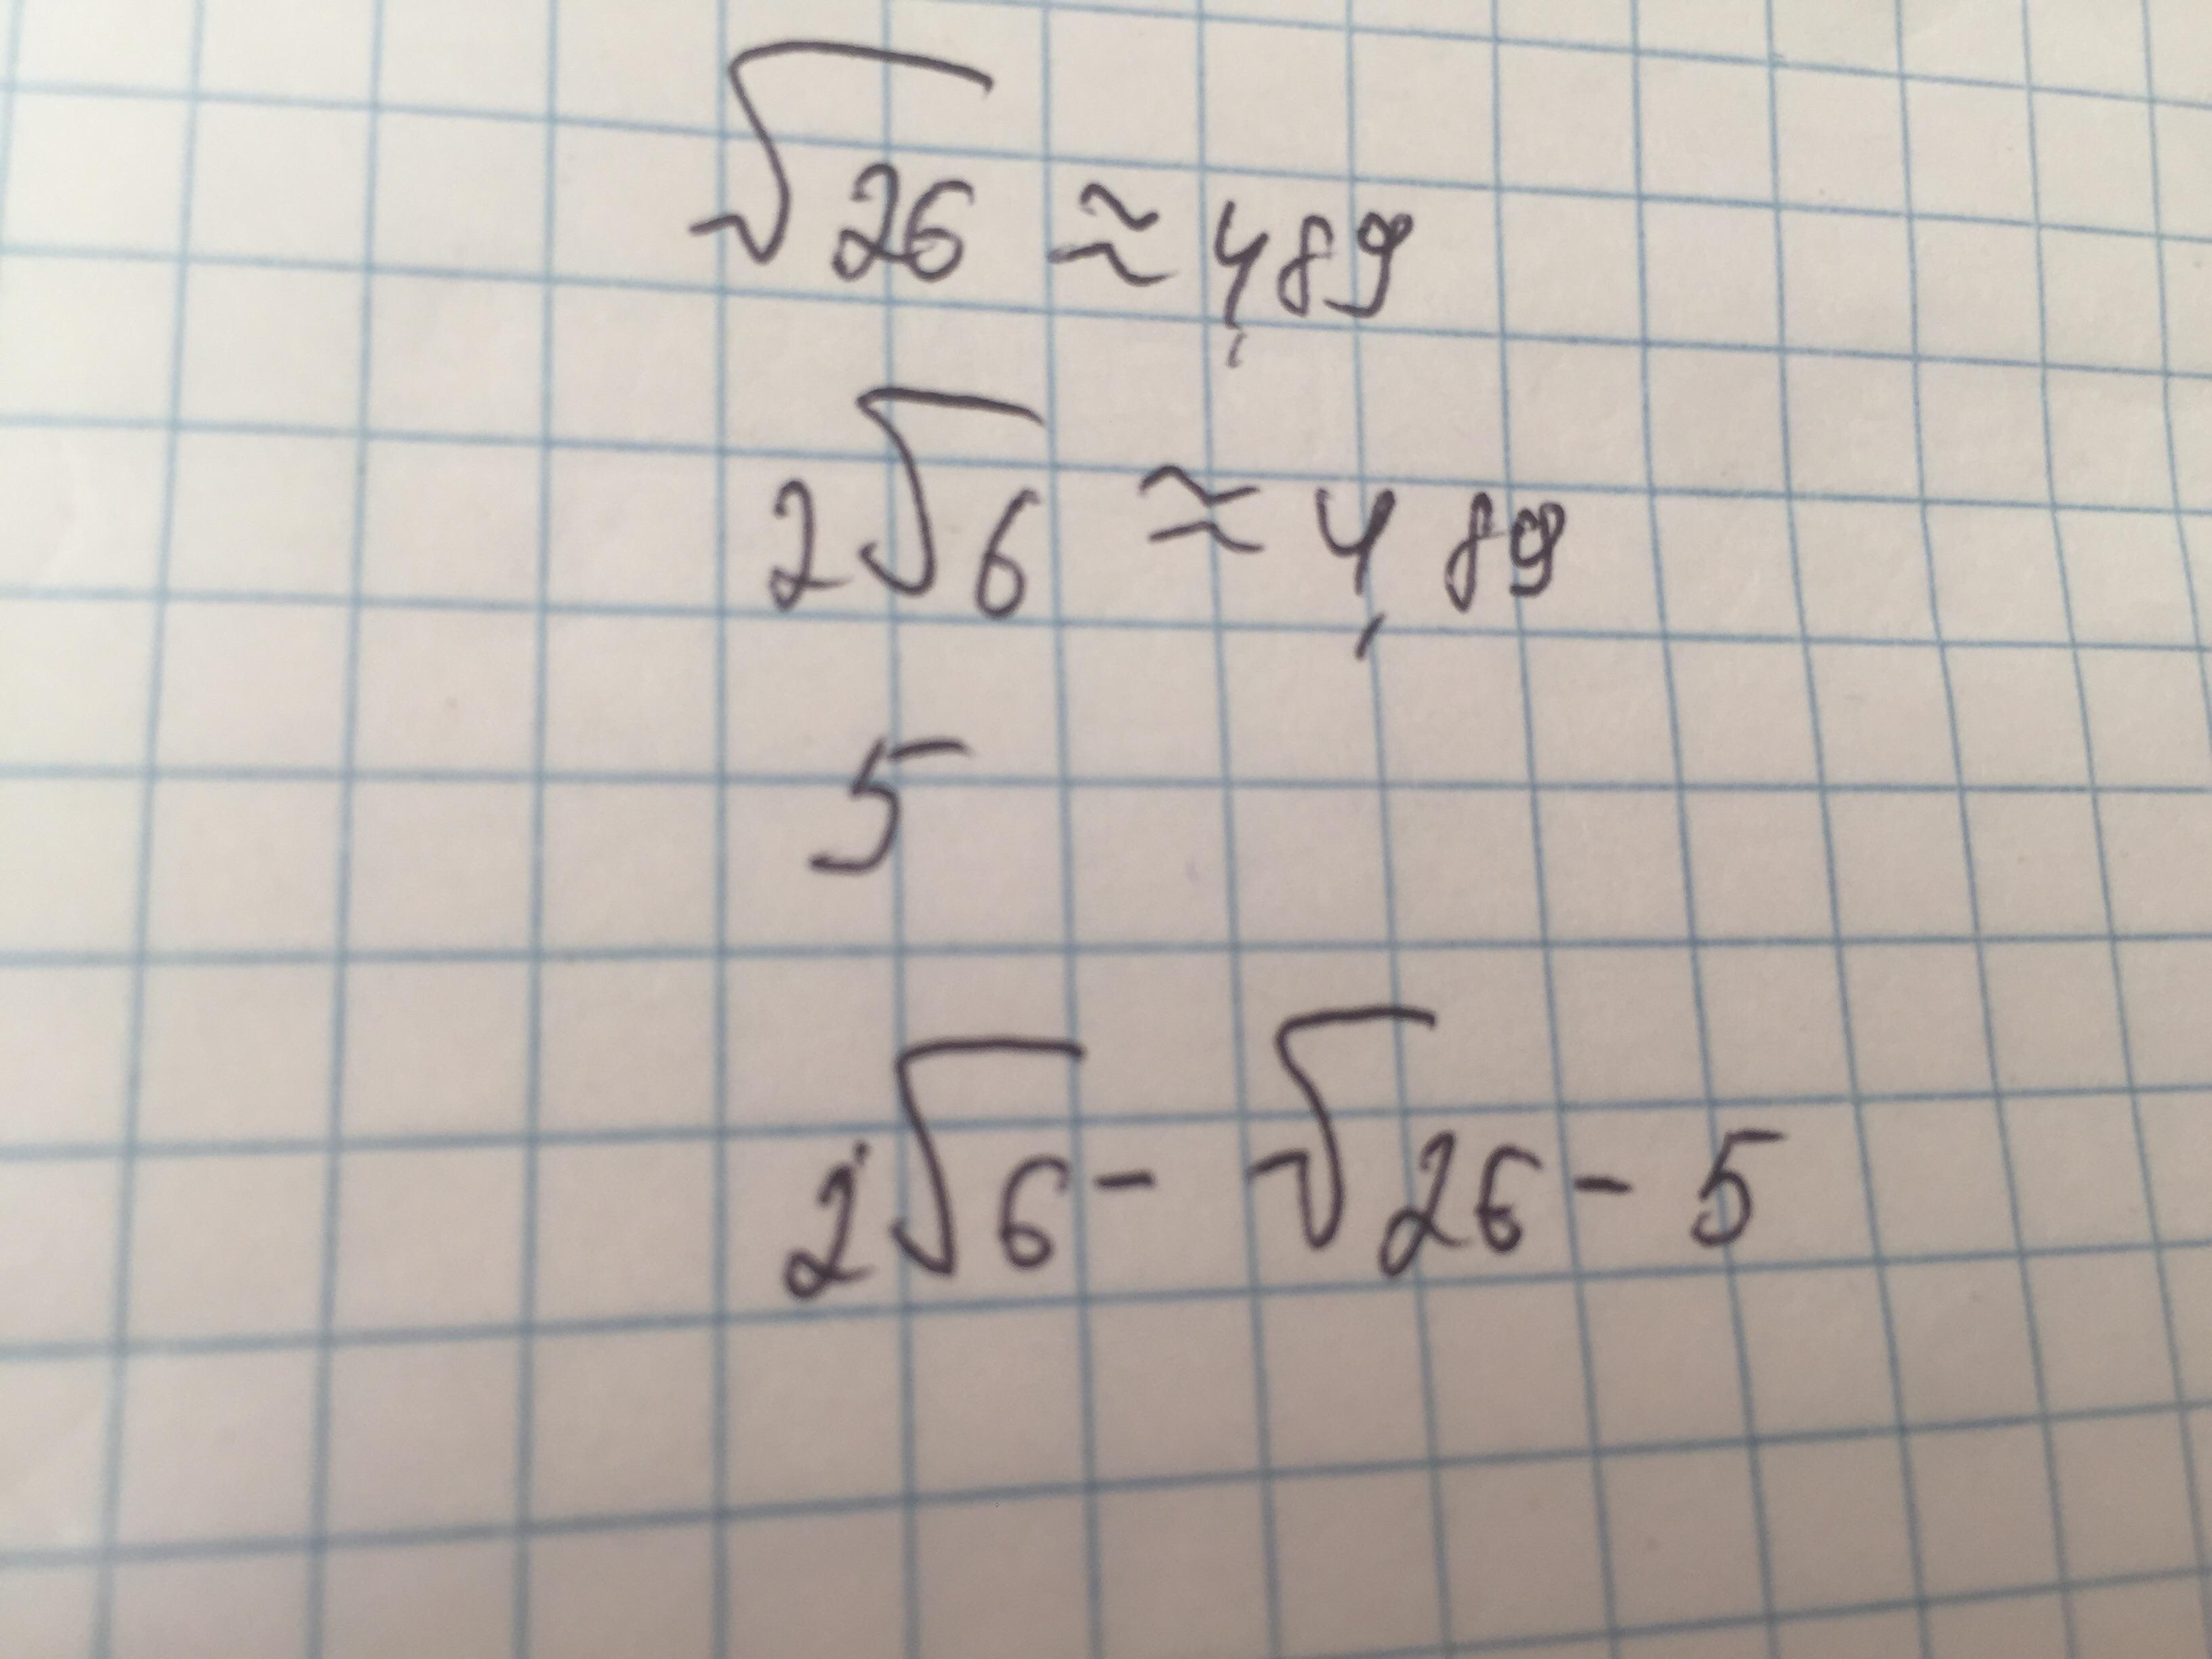 √26 ≈ 4,89
2√6 ≈ 4,89
5
2√6 - √26 - 5